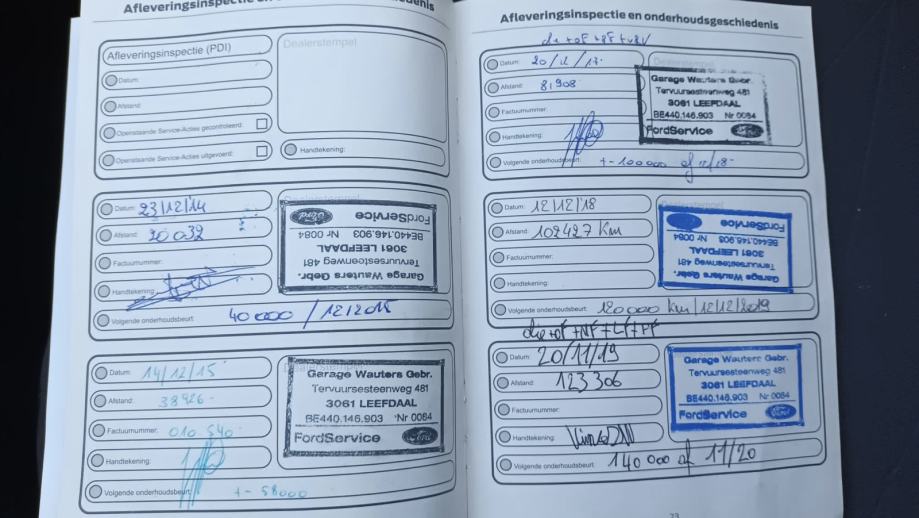 Afleveringsinspectie en onderhoudsgeschiedenis
Afleveringsinspectie (PDI)
Dealerstempel
Datum:
Afstand:
Openstaande Service-Acties gecontroleerd:
Openstaande Service-Acties uitgevoerd:
Handtekening:
Datum: 23/12/14
Afstand: 20032
Factuurnummer:
Handtekening:
Volgende onderhoudsbeurt: 40000 / 12/2015
Garage Wauters Gebr.
Tervuursesteenweg 481
3061 LEEFDAAL
BE440.146.903 Nr 0084
FordService Ford
Datum: 14/12/15
Afstand: 38926-
Factuurnummer: 010.540
Handtekening:
Volgende onderhoudsbeurt: +- 58000
Garage Wauters Gebr.
Tervuursesteenweg 481
3061 LEEFDAAL
BE440.146.903 Nr 0084
FordService Ford
Afleveringsinspectie en onderhoudsgeschiedenis
Datum: 20/12/17
Afstand: 81908
Factuurnummer:
Handtekening:
Volgende onderhoudsbeurt: +- 100000 of 12/18-
Garage Wauters Gebr.
Tervuursesteenweg 481
3061 LEEFDAAL
BE440.146.903 Nr 0084
FordService Ford
Datum: 12/12/18
Afstand: 102427 Km
Factuurnummer:
Handtekening:
Volgende onderhoudsbeurt: 120000 km/12/12/2019
Garage Wauters Gebr.
Tervuursesteenweg 481
3061 LEEFDAAL
BE440.146.903 Nr 0084
FordService
olie+oF+NF+LF+PF
Datum: 20/11/19
Afstand: 123306
Factuurnummer:
Handtekening:
Volgende onderhoudsbeurt: 140000 of 11/20
Garage Wauters Gebr.
Tervuursesteenweg 481
3061 LEEFDAAL
BE440.146.903 Nr 0084
FordService Ford